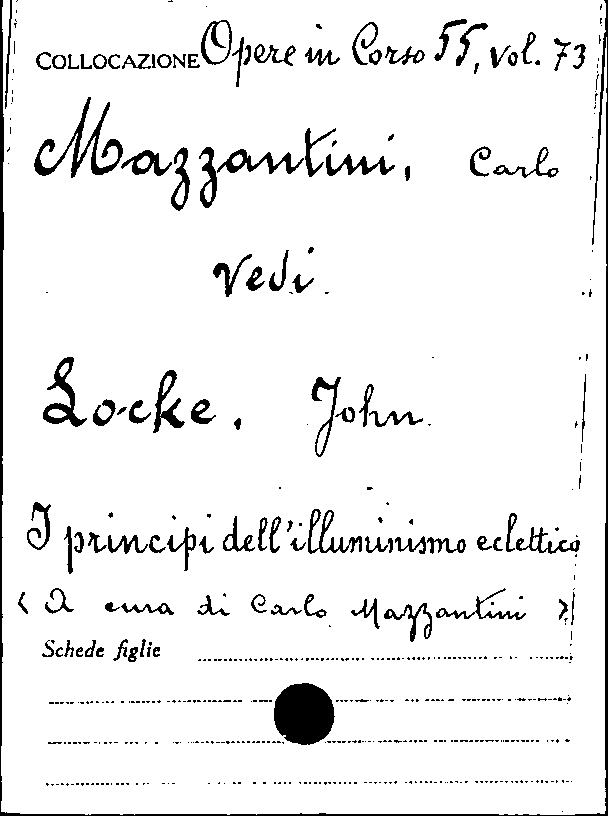 COLLOCAZIONE Opere in Corso 55, vol. 73
Mazzantini, Carlo
Vedi
Locke, John
I principi dell'illuminismo eclettico
< A cura di Carlo Mazzantini >
Schede figlie